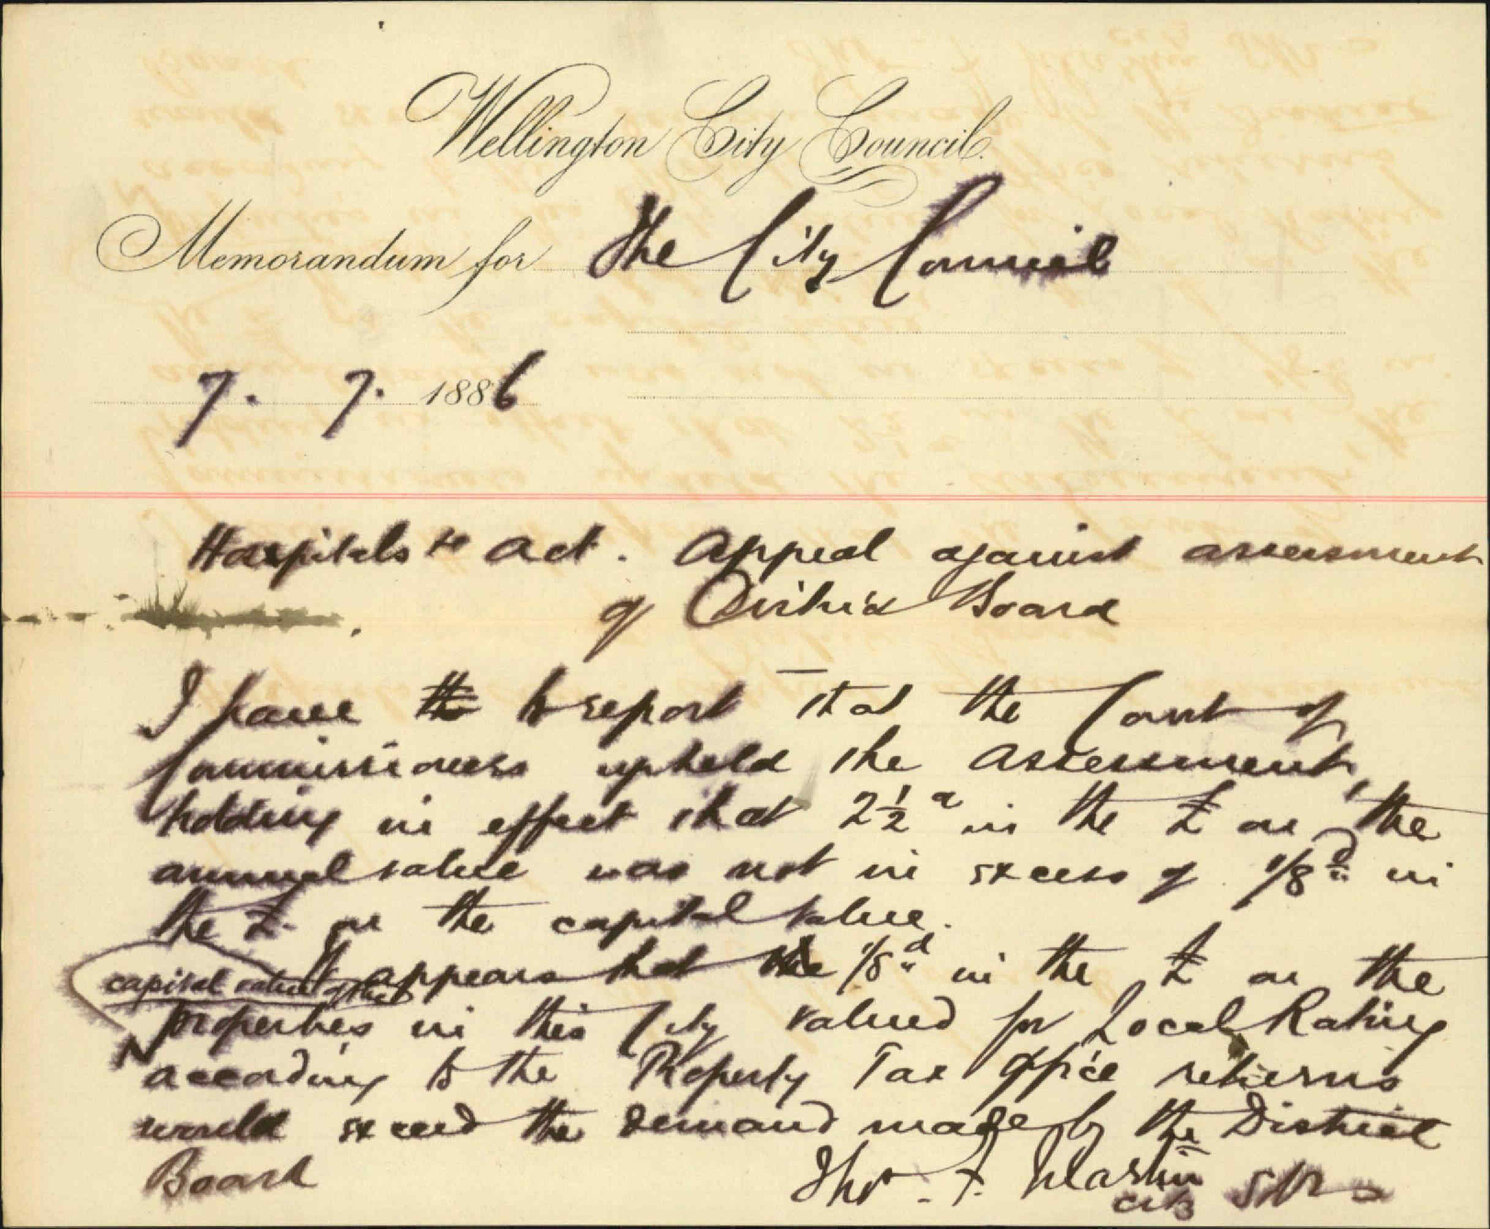 Wellington City Council.
Memorandum for The City Council
7. 7. 1886
Hospitals &c Act. Appeal against assessment
of District Board
I have to report that the Court of
Commissioners upheld the assessment,
holding in effect that 2½d in the £ on the
annual value was not in excess of 1/8d in
the £ on the capital value.
It appears that 1/8d in the £ on the
capital value of the
properties in this City valued for Local Rating
according to the Property Tax Office returns
would exceed the demand made by the District
Board
Thos. F. Martin
City